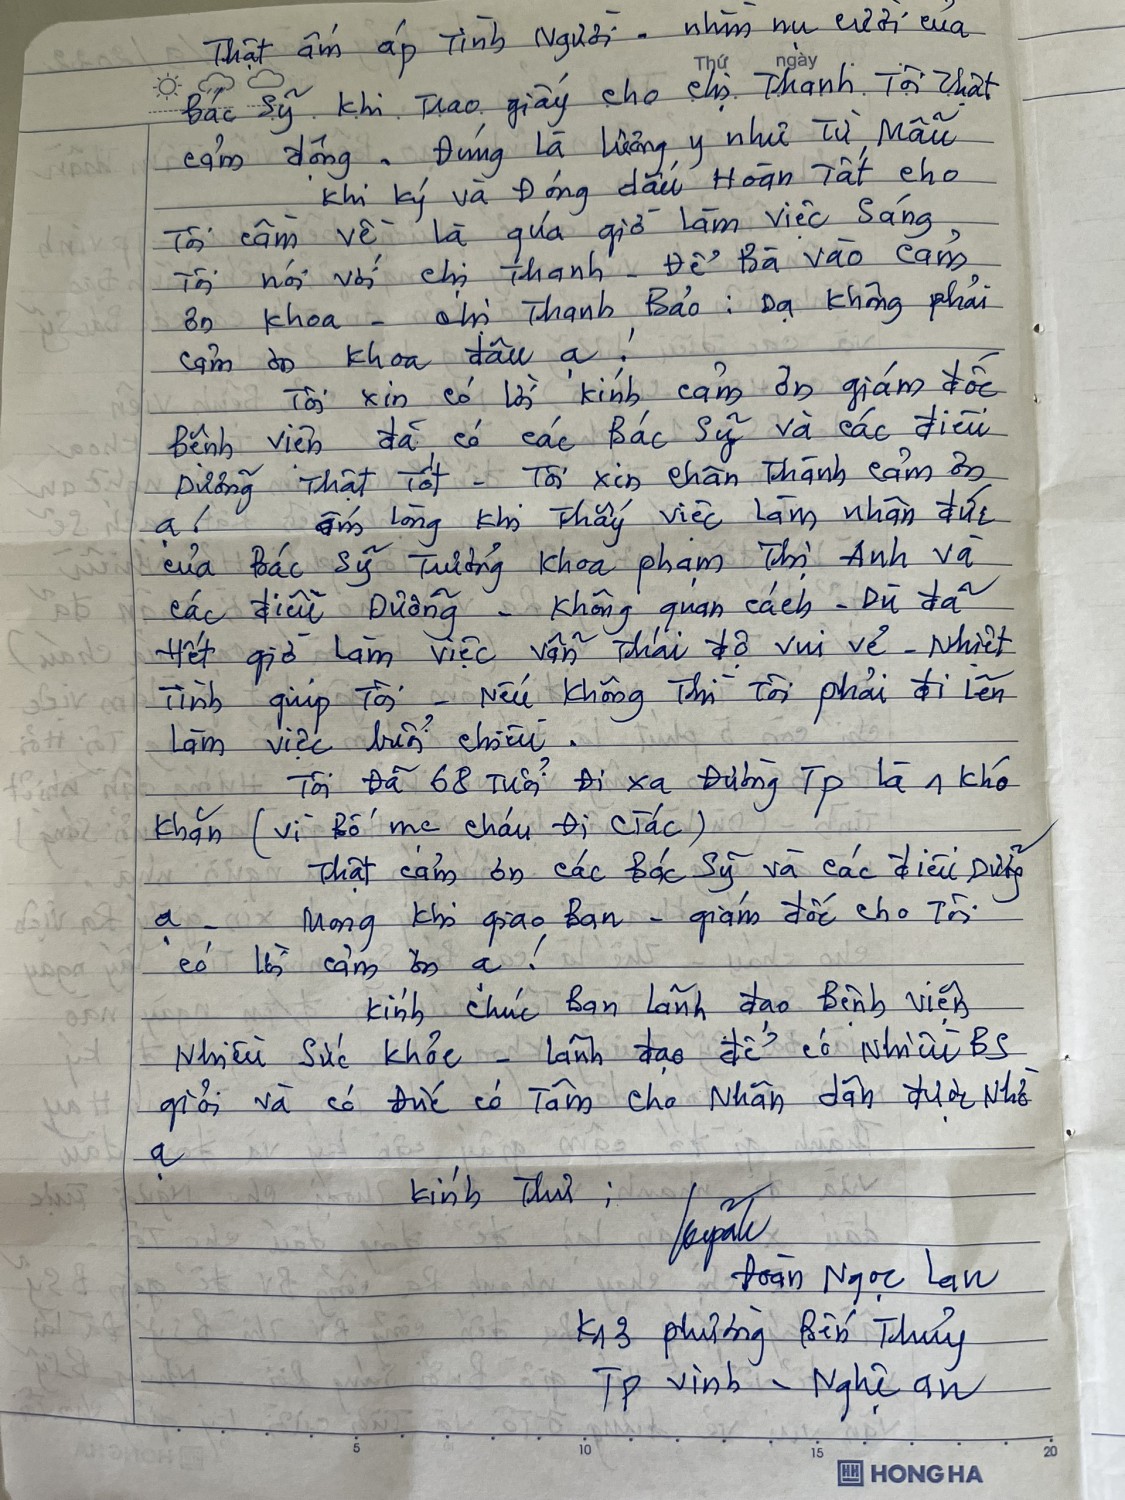 Thật ấm áp Tình Người - nhìn nụ cười của
Thứ ngày
Bác Sỹ khi Trao giấy cho chị Thanh Tôi Thật
cảm động - Đúng là lương y như Từ Mẫu
Khi ký và Đóng dấu Hoàn Tất cho
Tôi cầm về là qúa giờ làm việc Sáng
Tôi nói với chị Thanh - Để Bà vào cảm
ơn khoa - chị Thanh Bảo : Dạ không phải
cảm ơn khoa đâu ạ !
Tôi xin có lời kính cảm ơn giám đốc
Bệnh viện đã có các Bác Sỹ và các điều
Dưỡng Thật Tốt - Tôi xin chân Thành cảm ơn
ạ ! ấm lòng khi Thấy việc làm nhân đức
của Bác Sỹ Trưởng khoa phạm Thị Anh và
các điều Dưỡng - không quan cách - Dù đã
Hết giờ làm việc vẫn Thái độ vui vẻ - Nhiệt
Tình giúp Tôi - Nếu không Thì Tôi phải đi lên
làm việc buổi chiều .
Tôi Đã 68 Tuổi Đi xa Đường Tp là 1 khó
khăn (vì Bố mẹ cháu Đi CTác)
Thật cảm ơn các Bác Sỹ và các điều Dưỡng
ạ - Mong khi giao Ban - giám đốc cho Tôi
có lời cảm ơn ạ !
kính chúc Ban lãnh đạo Bệnh viện
Nhiều Sức khỏe - lãnh đạo để có Nhiều BS
giỏi và có Đức có Tâm cho Nhân dân được Nhờ
ạ
kính Thư ;
Đoàn Ngọc Lan
K13 phường Bến Thủy
Tp vinh - Nghệ an
5 10 15 20
HH HONG HA